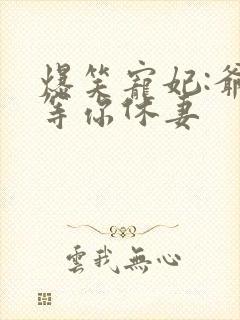 爆笑寵妃:爺
等你休妻
雲我無心